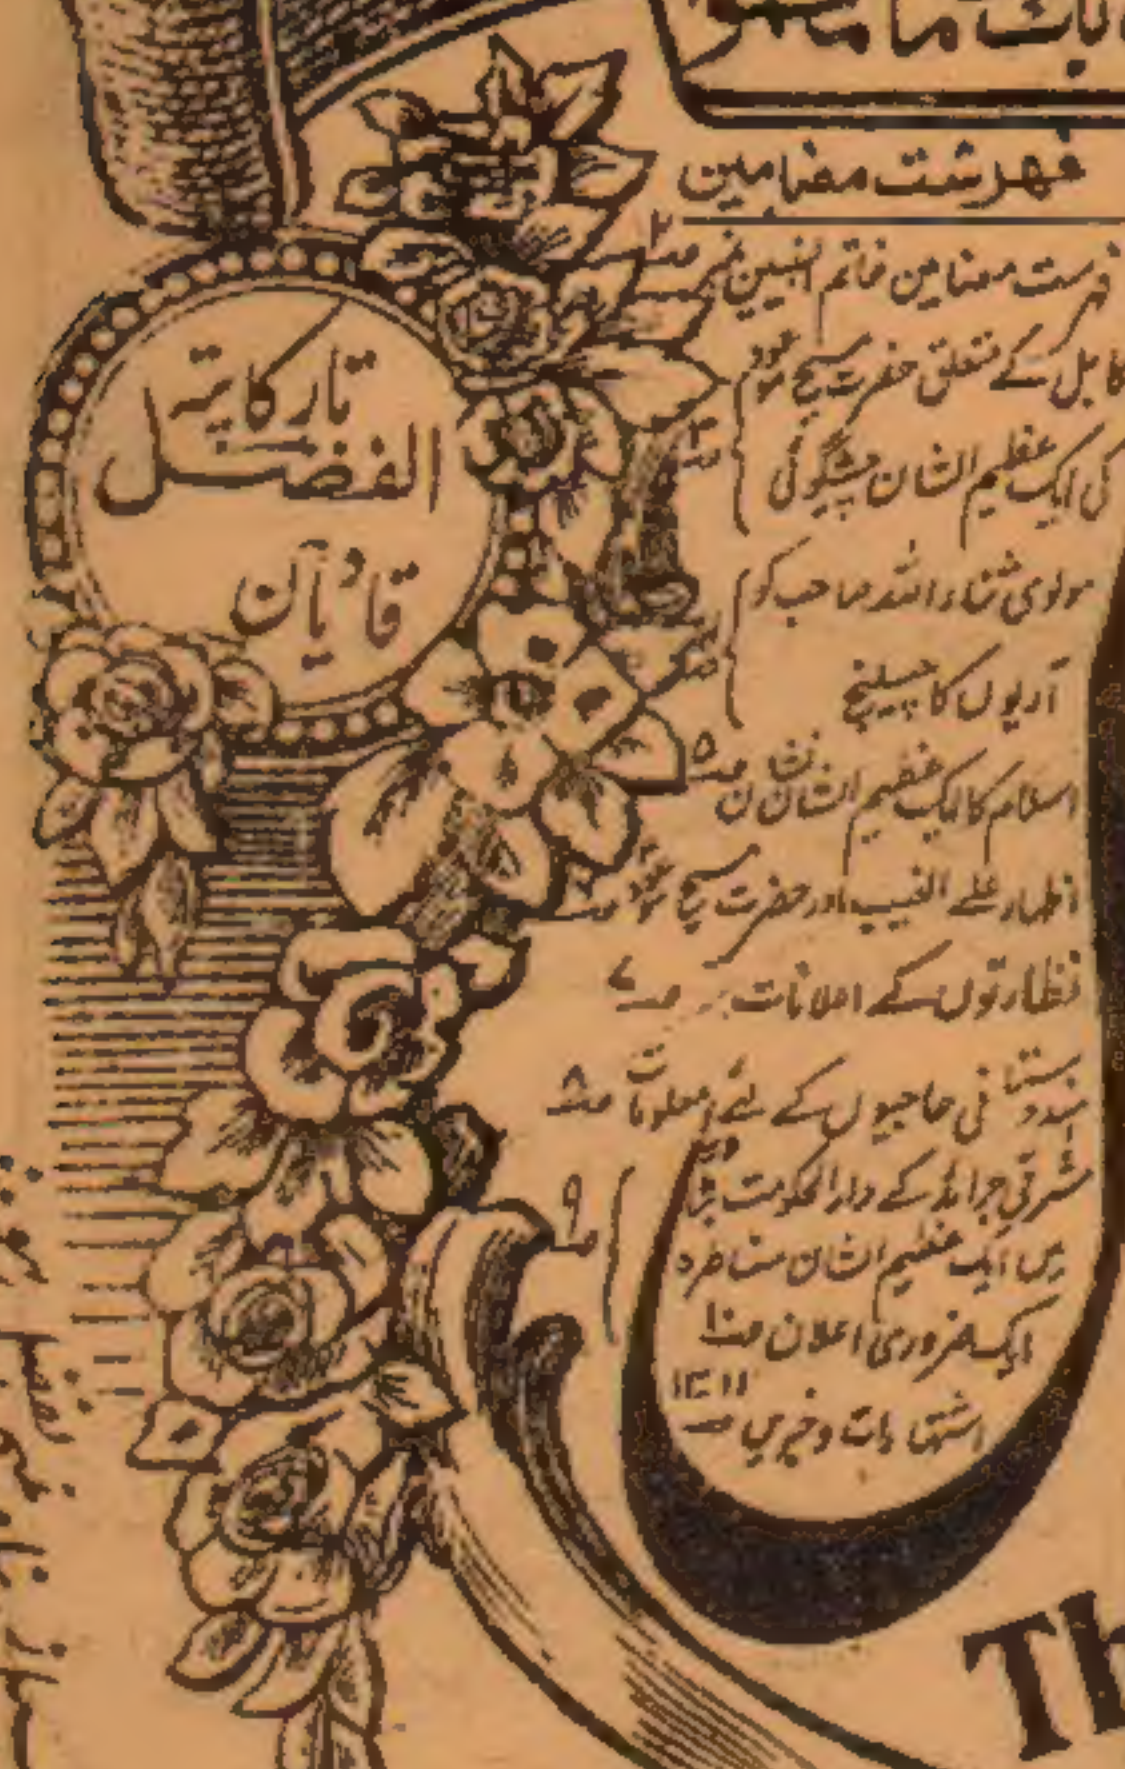 فہرست مضامین
فہرست مضامین خاتم النبیین نمبر ص۲
کابل کے متعلق حضرت مسیح موعود
کی ایک عظیم الشان پیشگوئی
مولوی ثناء اللہ صاحب کو
آریوں کا چیلنج
اسلام کا ایک عظیم الشان نشان ص۵
اظہار علے الغیب اور حضرت مسیح موعود
نظارتوں کے اعلانات ص۷
ہندوستانی حاجیوں کے لئے معلومات ص۸
مشرقی جزائر کے دارالحکومت
میں ایک عظیم الشان مناظرہ ص۹
ایک ضروری اعلان ص۱۰
اشتہارات و خبریں ص۱۱ ۱۲
تار کا پتہ
الفضل
قادیان
Th